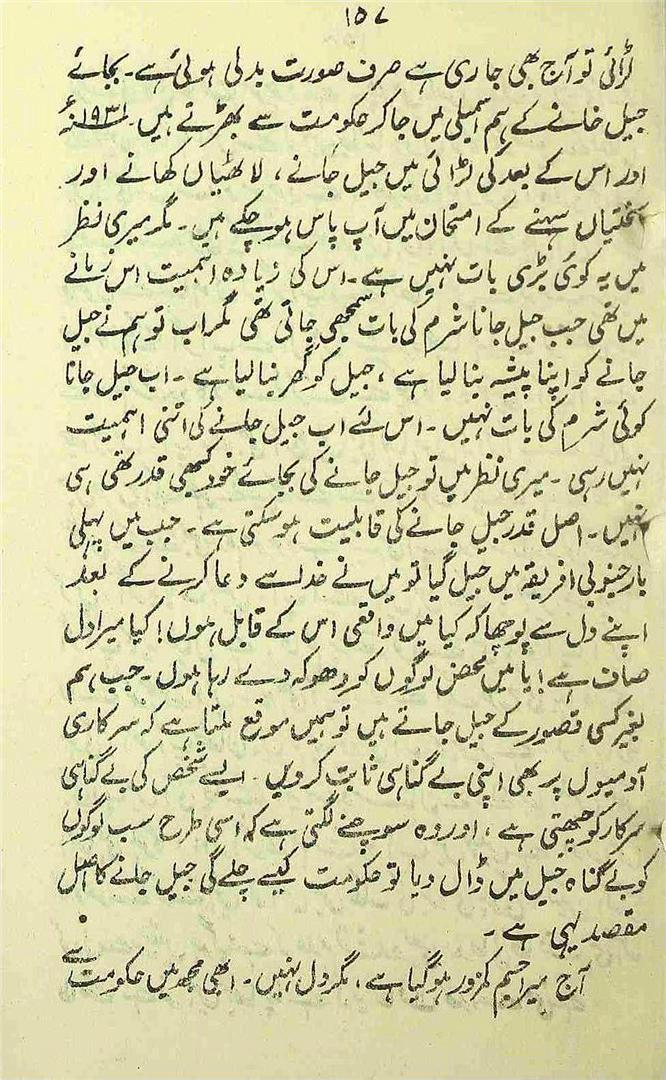 ۱۵۷
لڑائی تو آج بھی جاری ہے صرف صورت بدلی ہوئی ہے۔ بجائے
جیل خانے کے ہم اسمبلی میں جا کر حکومت سے بھڑتے ہیں۔ ۱۹۳۱ء
اور اس کے بعد کی لڑائی میں جیل جانے، لاٹھیاں کھانے اور
سختیاں سہنے کے امتحان میں آپ پاس ہو چکے ہیں۔ مگر میری نظر
میں یہ کوئی بڑی بات نہیں ہے۔ اس کی زیادہ اہمیت اس زمانے
میں تھی جب جیل جانا شرم کی بات سمجھی جاتی تھی مگر اب تو ہم نے جیل
جانے کو اپنا پیشہ بنا لیا ہے، جیل کو گھر بنا لیا ہے۔ اب جیل جانا
کوئی شرم کی بات نہیں۔ اس لئے اب جیل جانے کی اتنی اہمیت
نہیں رہی۔ میری نظر میں تو جیل جانے کی بجائے خود کبھی قدر تھی ہی
نہیں۔ اصل قدر جیل جانے کی قابلیت ہو سکتی ہے۔ جب میں پہلی
بار جنوبی افریقہ میں جیل گیا تو میں نے خدا سے دعا کرنے کے بعد
اپنے دل سے پوچھا کہ کیا میں واقعی اس کے قابل ہوں! کیا میرا دل
صاف ہے! یا میں محض لوگوں کو دھوکہ دے رہا ہوں۔ جب ہم
بغیر کسی قصور کے جیل جاتے ہیں تو ہمیں موقع ملتا ہے کہ سرکاری
آدمیوں پر بھی اپنی بے گناہی ثابت کر دیں۔ ایسے شخص کی بے گناہی
سرکار کو چبھتی ہے، اور وہ سوچنے لگتی ہے کہ اسی طرح سب لوگوں
کو بے گناہ جیل میں ڈال دیا تو حکومت کیسے چلے گی جیل جانے کا اصل
مقصد یہی ہے۔
آج میرا جسم کمزور ہو گیا ہے، مگر دل نہیں۔ ابھی مجھ میں حکومت سے